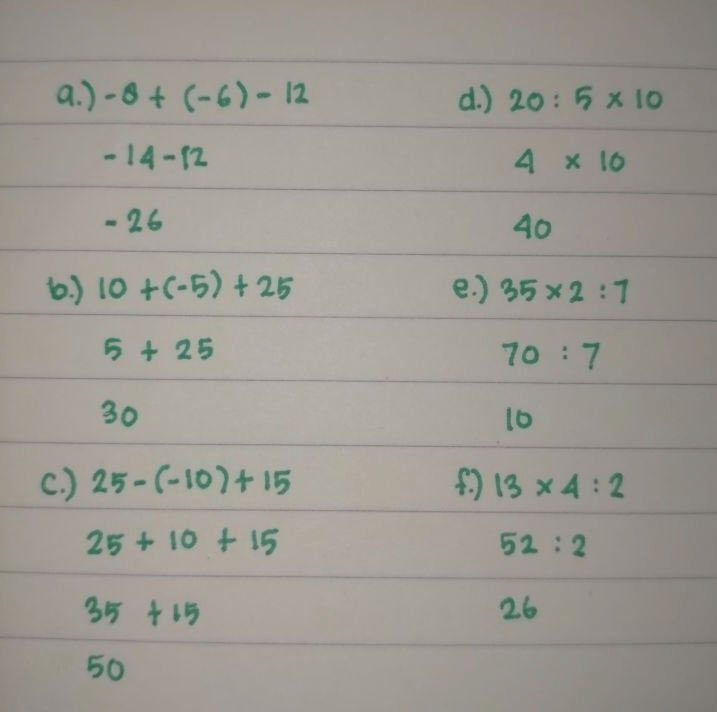 a.) -8 + (-6) - 12
-14 - 12
-26
b.) 10 + (-5) + 25
5 + 25
30
c.) 25 - (-10) + 15
25 + 10 + 15
35 + 15
50
d.) 20 : 5 × 10
4 × 10
40
e.) 35 × 2 : 7
70 : 7
10
f.) 13 × 4 : 2
52 : 2
26